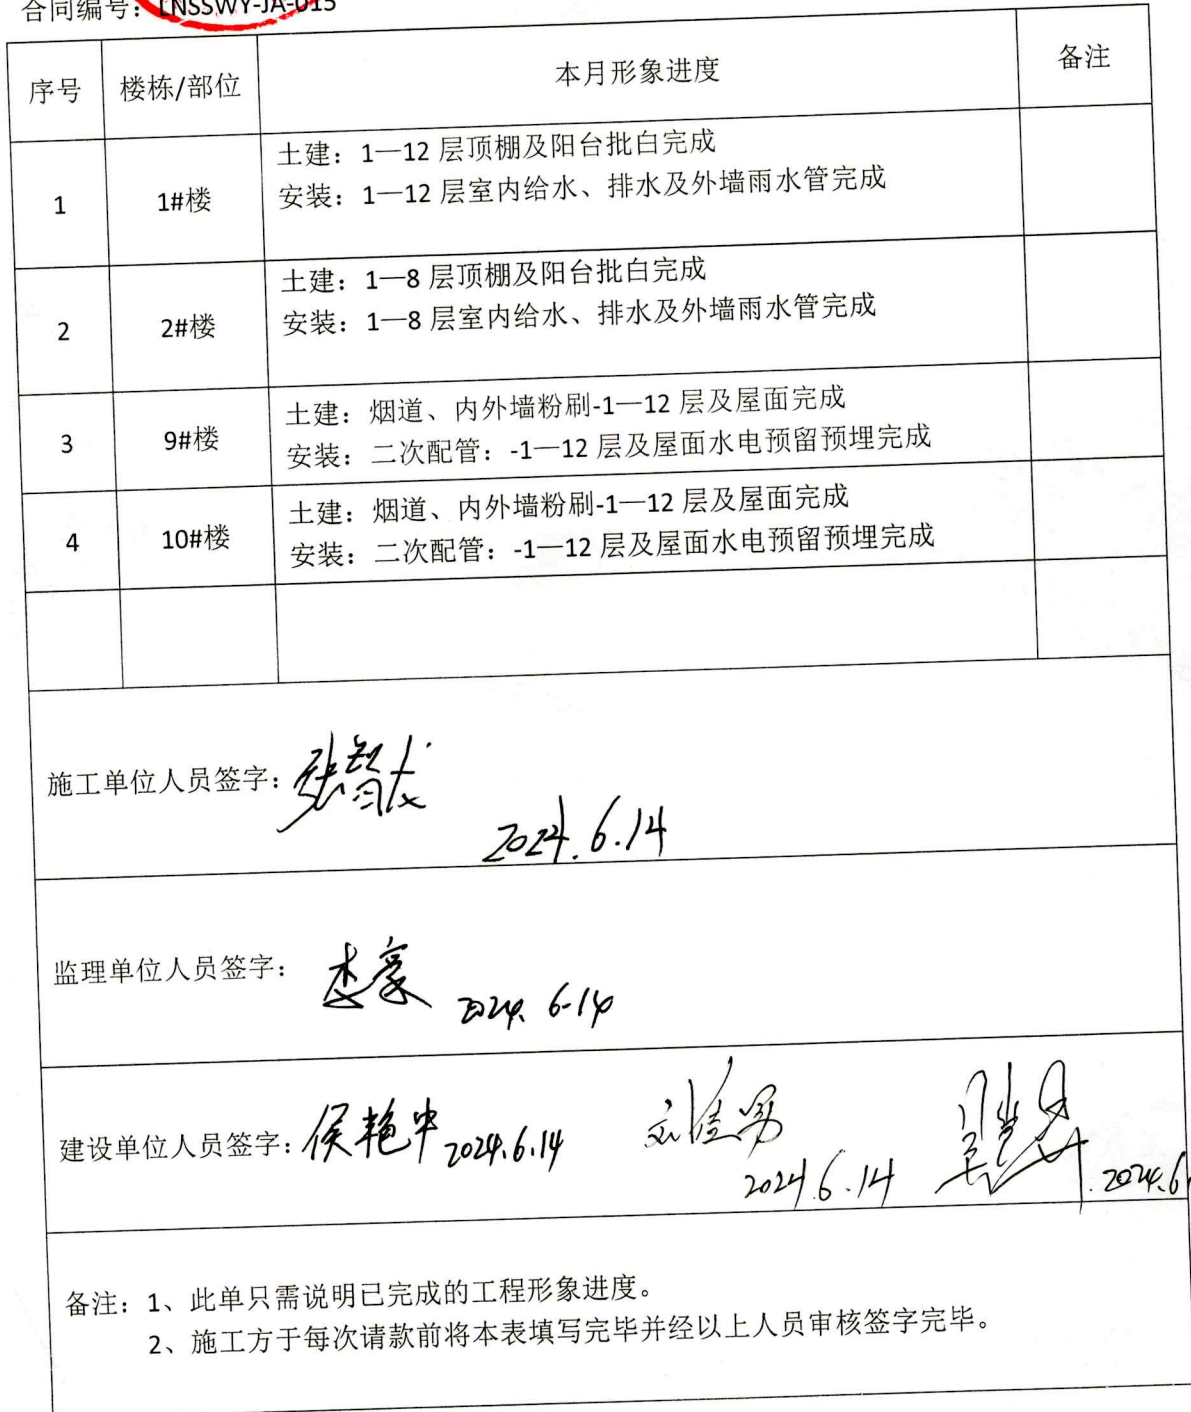 合同编号：LNSSWY-JA-015
序号 楼栋/部位 本月形象进度 备注
1 1#楼 土建：1—12 层顶棚及阳台批白完成
安装：1—12 层室内给水、排水及外墙雨水管完成
2 2#楼 土建：1—8 层顶棚及阳台批白完成
安装：1—8 层室内给水、排水及外墙雨水管完成
3 9#楼 土建：烟道、内外墙粉刷-1—12 层及屋面完成
安装：二次配管：-1—12 层及屋面水电预留预埋完成
4 10#楼 土建：烟道、内外墙粉刷-1—12 层及屋面完成
安装：二次配管：-1—12 层及屋面水电预留预埋完成
施工单位人员签字：
2024.6.14
监理单位人员签字： 李豪 2024.6-14
建设单位人员签字：侯艳中 2024.6.14 刘佳男
2024.6.14 2024.6
备注：1、此单只需说明已完成的工程形象进度。
2、施工方于每次请款前将本表填写完毕并经以上人员审核签字完毕。